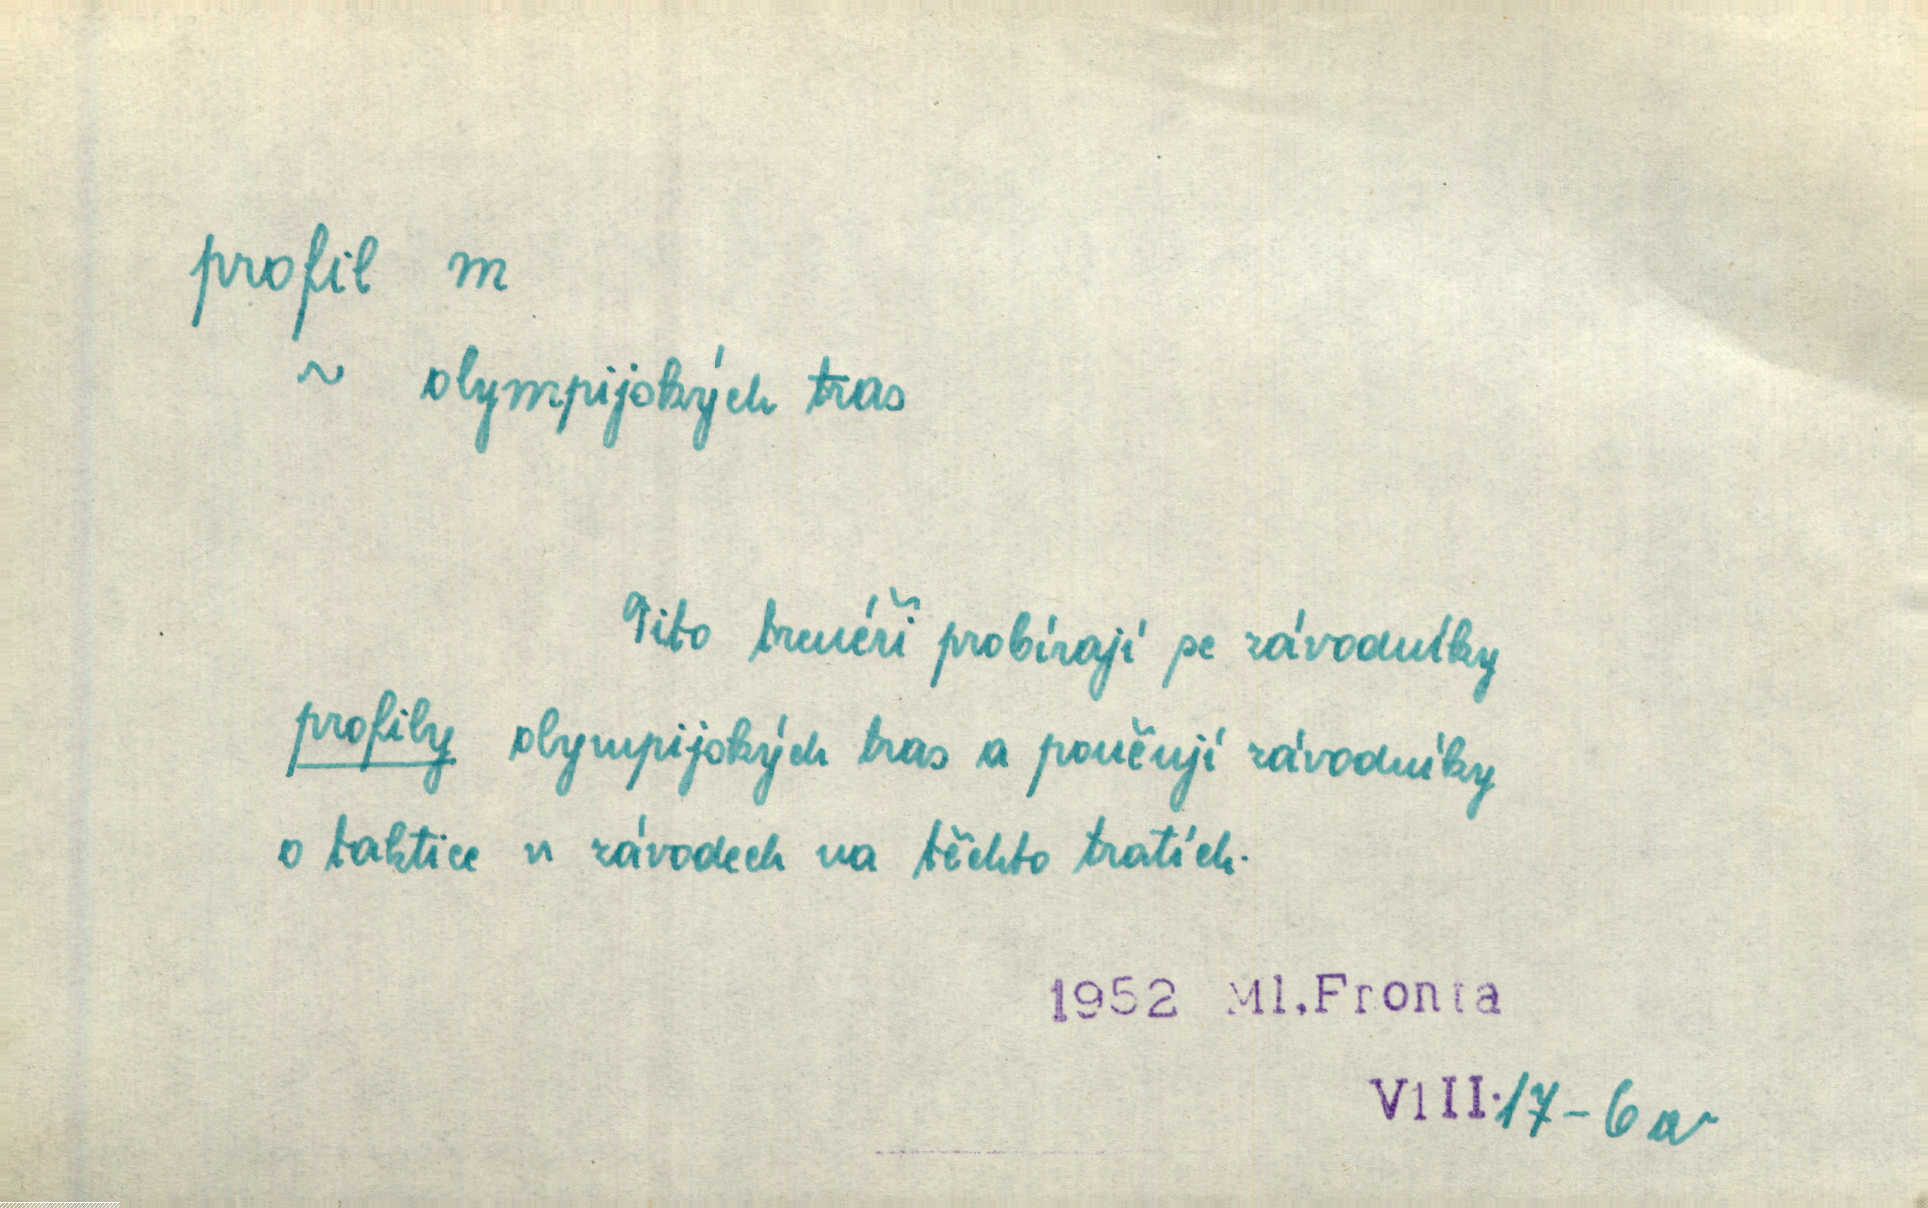 profil m
~ olympijských tras
Tito trenéři probírají se závodníky
profily olympijských tras a poučují závodníky
o taktice v závodech na těchto tratích.
1952 Ml.Fronta
VIII.17-6a